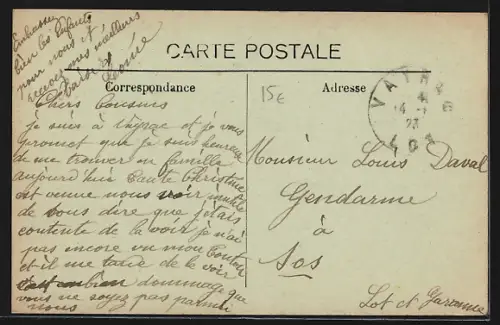 Embrassez
bien les Enfants
pour nous et
recevez mes meilleurs
Baisers
Léonie
CARTE POSTALE
Correspondance
Adresse
15€
Chers Cousins
je suis à Vayrac et je vous
promet que je suis heureuse
de me trouver en famille
aujourd'hui Tante Christine
est venue nous voir inutile
de vous dire que j'étais
contente de la voir je n'ai
pas encore vu mon Tonton
et il me tarde de le voir
c'est bien dommage que
vous ne soyez pas parmi
nous
VAYRAC
LOT
Monsieur Louis Daval
Gendarme
à
Sos
Lot et Garonne